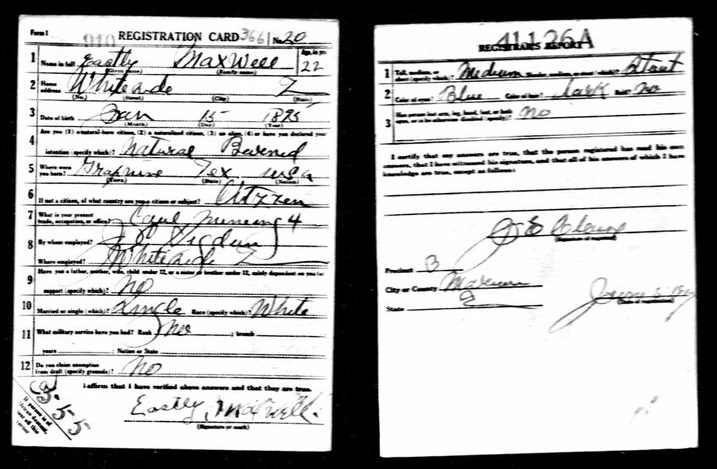 Form 1
REGISTRATION CARD 3661 No 20
1 Name in full Eastly Maxwell Age, in yrs 22
(Given name) (Family name)
2 Home address Whiteside T
(No.) (Street) (City) (State)
3 Date of birth Jan 15 1895
(Month) (Day) (Year)
4 Are you (1) a natural-born citizen, (2) a naturalized citizen, (3) an alien, (4) or have you declared your
intention (specify which)? Natural Borned
5 Where were you born? Grapvine Tex usa
(Town) (State) (Nation)
6 If not a citizen, of what country are you a citizen or subject? Citzzen
7 What is your present trade, occupation, or office? Coal 4
8 By whom employed?
Where employed? Whiteside
9 Have you a father, mother, wife, child under 12, or a sister or brother under 12, solely dependent on you for
support (specify which)? No
10 Married or single (which)? Single Race (specify which)? White
11 What military service have you had? Rank No ; branch
years ; Nation or State
12 Do you claim exemption from draft (specify grounds)? No
I affirm that I have verified above answers and that they are true.
Eastly Maxwell.
(Signature or mark)
55
41126A
REGISTRAR'S REPORT
1 Tall, medium, or short (specify which)? Medium Slender, medium, or stout (which)? Stout
2 Color of eyes? Blue Color of hair? Dark Bald? No
3 Has person lost arm, leg, hand, foot, or both eyes, or is he otherwise disabled (specify)? No
I certify that my answers are true, that the person registered has read his own
answers, that I have witnessed his signature, and that all of his answers of which I have
knowledge are true, except as follows:
(Signature of registrar)
Precinct 3
City or County Marion
State
(Date of registration)